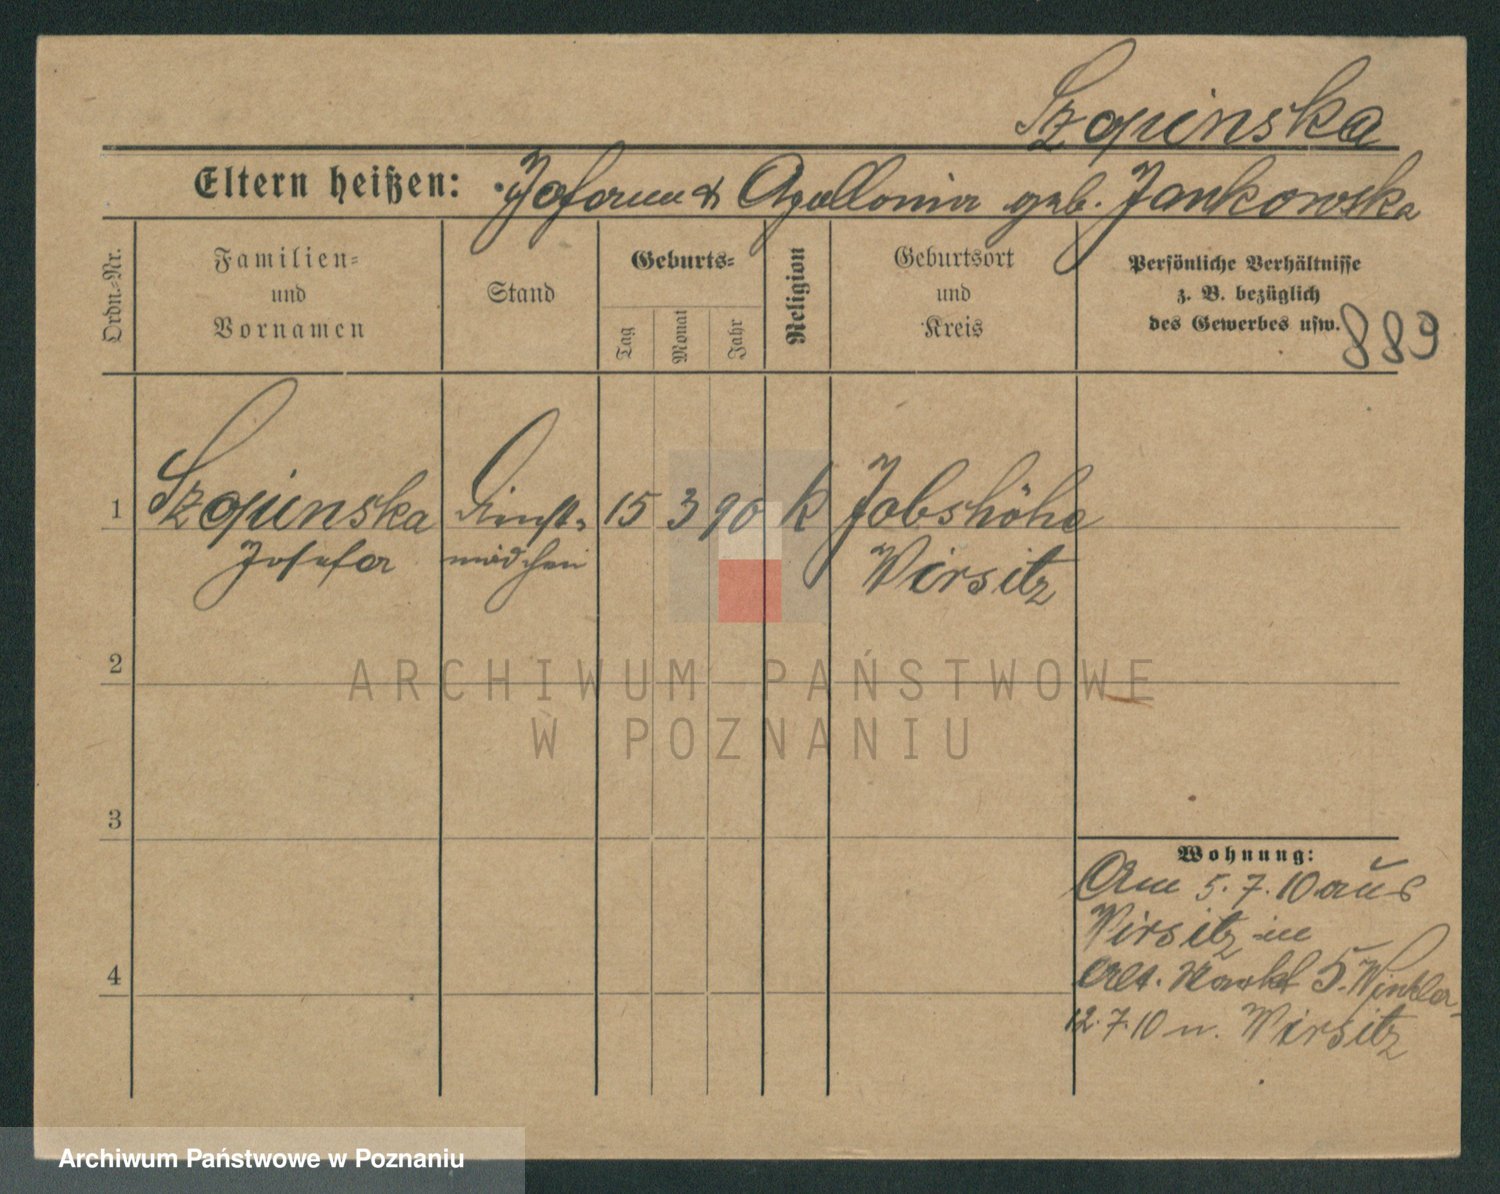 Szopinska
Eltern heißen: Johann & Apollonia geb. Jankowska
Ordn.-Nr.
Familien-
und
Vornamen
Stand
Geburts-
Tag
Monat
Jahr
Religion
Geburtsort
und
Kreis
Persönliche Verhältnisse
z. B. bezüglich
des Gewerbes usw.
889
1 Szopinska Dienst- 15 3 90 k Jobshöhe
Josefa mädchen Wirsitz
2
ARCHIWUM PAŃSTWOWE
W POZNANIU
3
Wohnung:
Am 5.7.10 aus
Wirsitz in
Alt. Markt 5. Winkler
4
12.7.10 n. Wirsitz
Archiwum Państwowe w Poznaniu